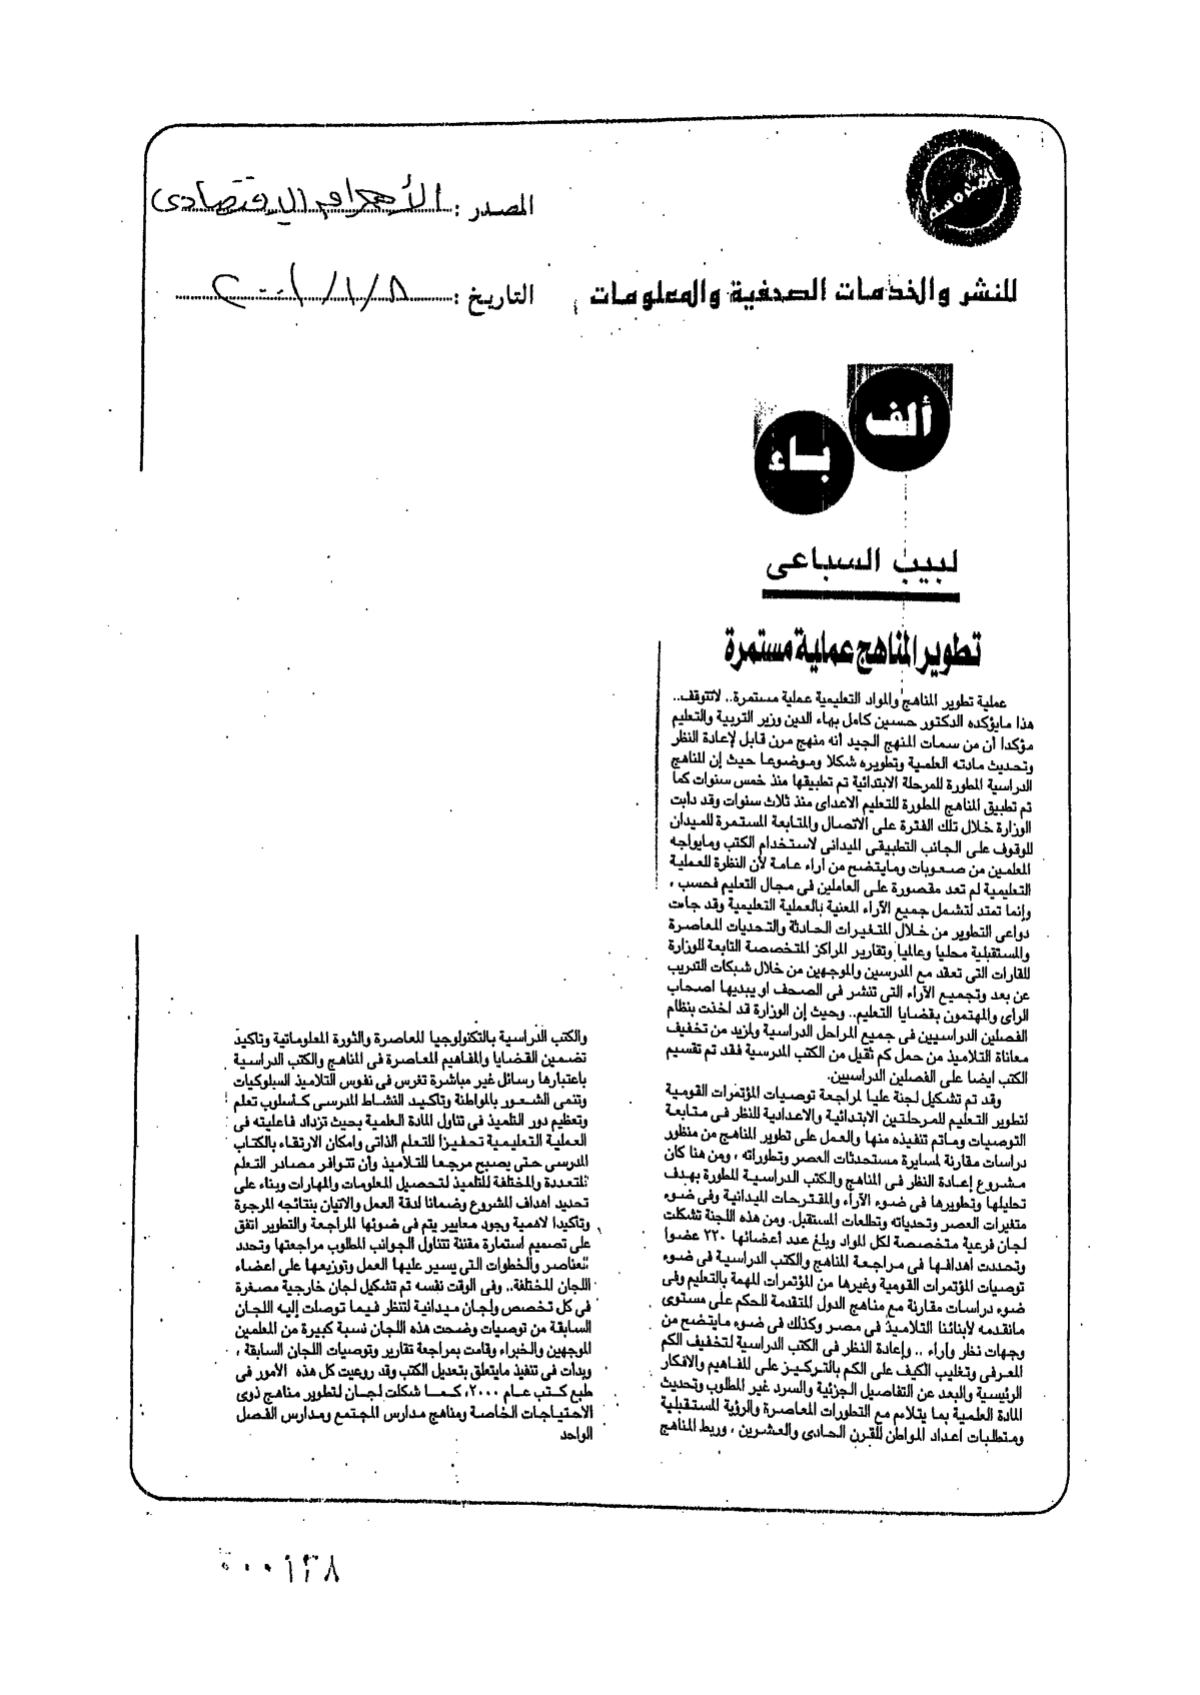 المصدر : الأهرام الاقتصادى
للنشر والخدمات الصحفية والمعلومات
التاريخ : ٢٠٠١/١/٨
ألف
باء
لبيب السباعى
تطوير المناهج عملية مستمرة
عملية تطوير المناهج والمواد التعليمية عملية مستمرة.. لاتتوقف..
هذا مايؤكده الدكتور حسين كامل بهاء الدين وزير التربية والتعليم
مؤكدا أن من سمات المنهج الجيد أنه منهج مرن قابل لإعادة النظر
وتحديث مادته العلمية وتطويره شكلا وموضوعا حيث إن المناهج
الدراسية المطورة للمرحلة الابتدائية تم تطبيقها منذ خمس سنوات كما
تم تطبيق المناهج المطورة للتعليم الاعدادى منذ ثلاث سنوات وقد دأبت
الوزارة خلال تلك الفترة على الاتصال والمتابعة المستمرة للميدان
للوقوف على الجانب التطبيقى الميدانى لاستخدام الكتب ومايواجه
المعلمين من صعوبات ومايتضح من اراء عامة لأن النظرة للعملية
التعليمية لم تعد مقصورة على العاملين فى مجال التعليم فحسب ،
وإنما تمتد لتشمل جميع الآراء المعنية بالعملية التعليمية وقد جاءت
دواعى التطوير من خلال المتغيرات الحادثة والتحديات المعاصرة
والمستقبلية محليا وعالميا وتقارير المراكز المتخصصة التابعة للوزارة
للقارات التى تعقد مع المدرسين والموجهين من خلال شبكات التدريب
عن بعد وتجميع الآراء التى تنشر فى الصحف او يبديها اصحاب
الراى والمهتمون بقضايا التعليم.. وحيث إن الوزارة قد اخذت بنظام
الفصلين الدراسيين فى جميع المراحل الدراسية ولمزيد من تخفيف
معاناة التلاميذ من حمل كم ثقيل من الكتب المدرسية فقد تم تقسيم
الكتب ايضا على الفصلين الدراسيين.
وقد تم تشكيل لجنة عليا لمراجعة توصيات المؤتمرات القومية
لتطوير التعليم للمرحلتين الابتدائية والاعدادية للنظر فى متابعة
التوصيات وماتم تنفيذه منها والعمل على تطوير المناهج من منظور
دراسات مقارنة لمسايرة مستحدثات العصر وتطوراته ، ومن هنا كان
مشروع إعادة النظر فى المناهج والكتب الدراسية المطورة بهدف
تحليلها وتطويرها فى ضوء الآراء والمقترحات الميدانية وفى ضوء
متغيرات العصر وتحدياته وتطلعات المستقبل. ومن هذه اللجنة تشكلت
لجان فرعية متخصصة لكل المواد وبلغ عدد أعضائها ٢٢٠ عضوا
وتحددت اهدافها فى مراجعة المناهج والكتب الدراسية فى ضوء
توصيات المؤتمرات القومية وغيرها من المؤتمرات المهمة بالتعليم وفى
ضوء دراسات مقارنة مع مناهج الدول المتقدمة للحكم على مستوى
مانقدمه لأبنائنا التلاميذ فى مصر وكذلك فى ضوء مايتضح من
وجهات نظر واراء .. وإعادة النظر فى الكتب الدراسية لتخفيف الكم
المعرفى وتغليب الكيف على الكم بالتركيز على المفاهيم والافكار
الرئيسية والبعد عن التفاصيل الجزئية والسرد غير المطلوب وتحديث
المادة العلمية بما يتلاءم مع التطورات المعاصرة والرؤية المستقبلية
ومتطلبات اعداد المواطن للقرن الحادى والعشرين ، وربط المناهج
والكتب الدراسية بالتكنولوجيا المعاصرة والثورة المعلوماتية وتاكيد
تضمين القضايا والمفاهيم المعاصرة فى المناهج والكتب الدراسية
باعتبارها رسائل غير مباشرة تغرس فى نفوس التلاميذ السلوكيات
وتنمى الشعور بالمواطنة وتاكيد النشاط المدرسى كأسلوب تعلم
وتعظيم دور التلميذ فى تناول المادة العلمية بحيث تزداد فاعليته فى
العملية التعليمية تحفيزا للتعلم الذاتى وامكان الارتقاء بالكتاب
المدرسى حتى يصبح مرجعا للتلاميذ وأن تتوافر مصادر التعلم
المتعددة والمختلفة للتلميذ لتحصيل المعلومات والمهارات وبناء على
تحديد اهداف المشروع وضمانا لدقة العمل والاتيان بنتائجه المرجوة
وتاكيدا لاهمية وجود معايير يتم فى ضوئها المراجعة والتطوير اتفق
على تصميم استمارة مقننة تتناول الجوانب المطلوب مراجعتها وتحدد
العناصر والخطوات التى يسير عليها العمل وتوزيعها على اعضاء
اللجان المختلفة.. وفى الوقت نفسه تم تشكيل لجان خارجية مصغرة
فى كل تخصص ولجان ميدانية لتنظر فيما توصلت إليه اللجان
السابقة من توصيات وضمت هذه اللجان نسبة كبيرة من المعلمين
الموجهين والخبراء وقامت بمراجعة تقارير وتوصيات اللجان السابقة ،
وبدات فى تنفيذ مايتعلق بتعديل الكتب وقد روعيت كل هذه الأمور فى
طبع كتب عام ٢٠٠٠، كما شكلت لجان لتطوير مناهج ذوى
الاحتياجات الخاصة ومناهج مدارس المجتمع ومدارس الفصل
الواحد